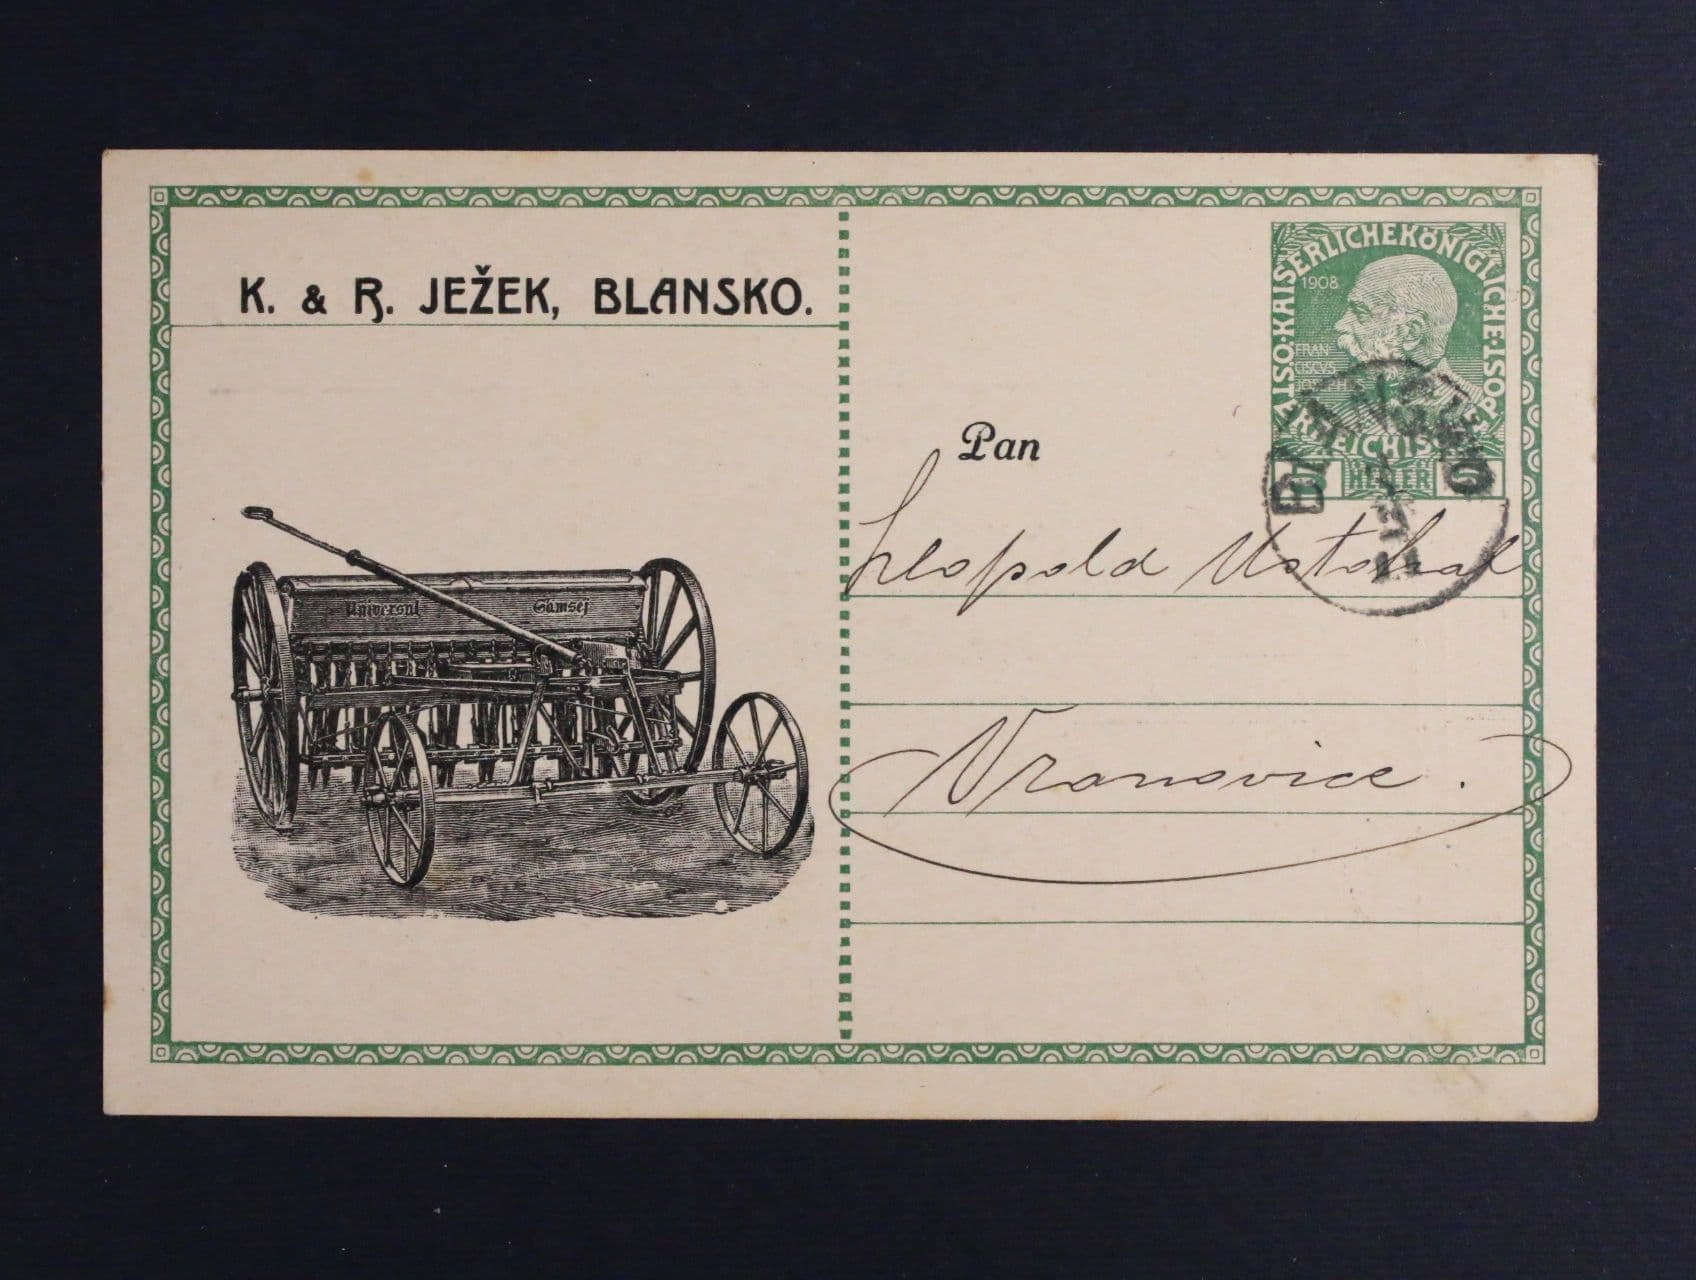 K. & R. JEŽEK, BLANSKO.
Universal Samsej
KAISERLICHE KÖNIGLICHE ÖSTERREICHISCHE POST
1908
FRAN
CISCVS
IOSEPHVS
HELLER
Pan
Leopold Ustohal
Vranovice.